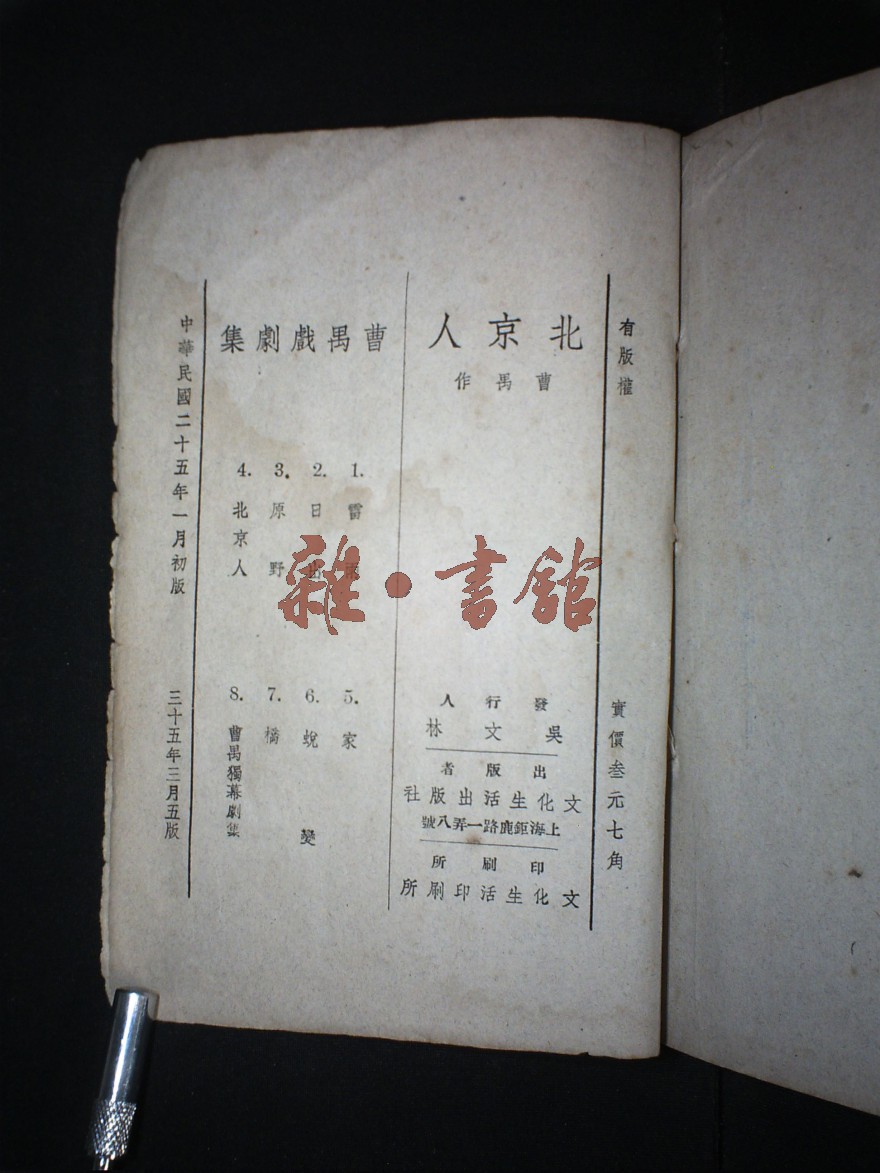 有版權
實價叁元七角
北京人
曹禺作
發行人
吳文林
出版者
文化生活出版社
上海鉅鹿路一弄八號
印刷所
文化生活印刷所
曹禺戲劇集
1. 雷雨
2. 日出
3. 原野
4. 北京人
5. 家
6. 蛻變
7. 橋
8. 曹禺獨幕劇集
中華民國二十五年一月初版
三十五年三月五版
雜·書館